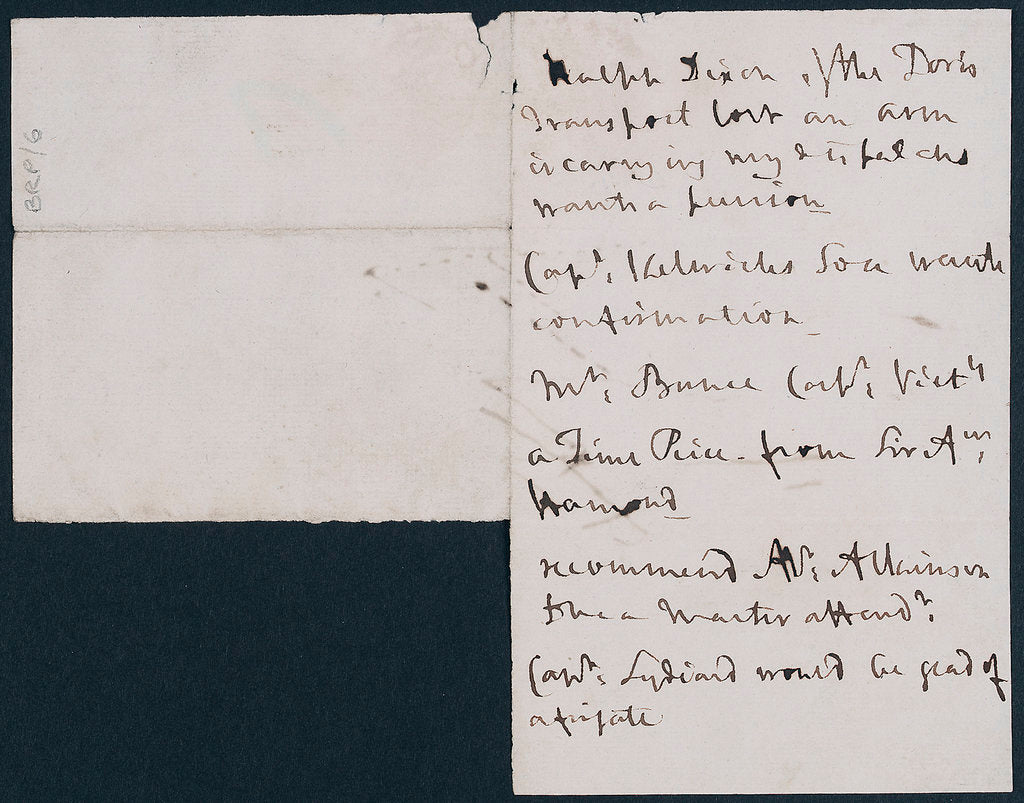 BRP/6
Ralph Dixon of the Doris
Transport lost an arm
in carrying my dispatches
wants a pension
Capt. Kelwicks Son wants
confirmation
Mr. Bunce Capt. Vict.g
a Time Peice - from Sir A.
Hamond
recommend Mr. Atkinson
to be a Master attendt.
Capt. Lydiard would be glad of
a frigate